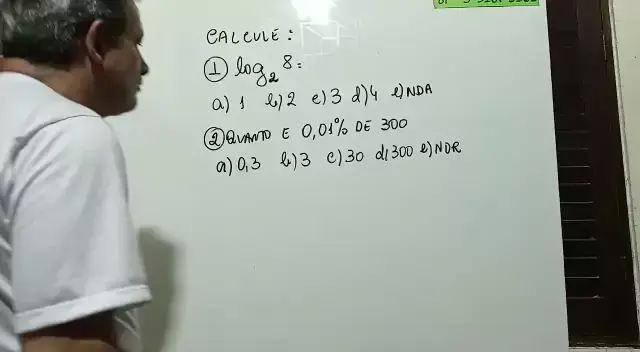 CALCULE:
① log₂ 8=
a) 1 b) 2 c) 3 d) 4 e) NDA
② QUANTO E 0,01% DE 300
a) 0,3 b) 3 c) 30 d) 300 e) NDR